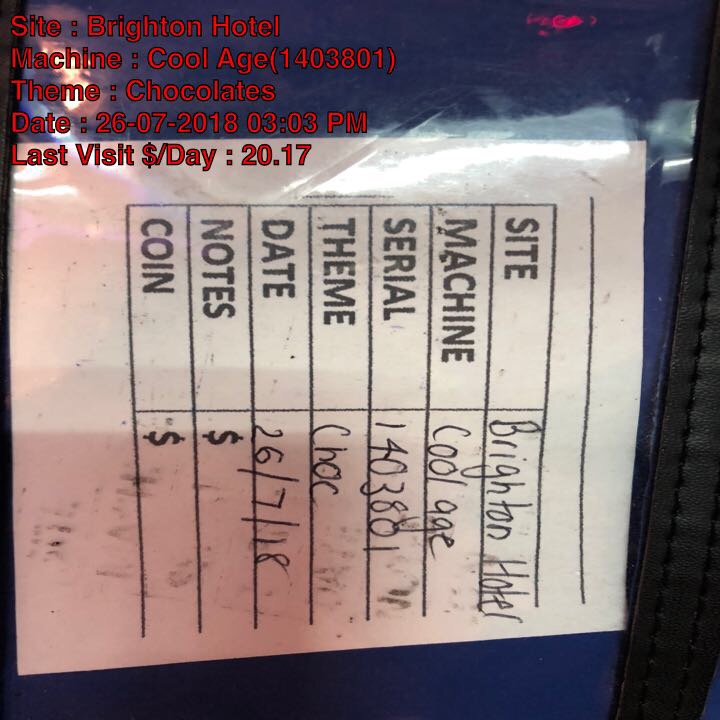 Site : Brighton Hotel
Machine : Cool Age(1403801)
Theme : Chocolates
Date : 26-07-2018 03:03 PM
Last Visit $/Day : 20.17
SITE Brighton Hotel
MACHINE Cool age
SERIAL 1403801
THEME Choc
DATE 26/7/18
NOTES $
COIN $